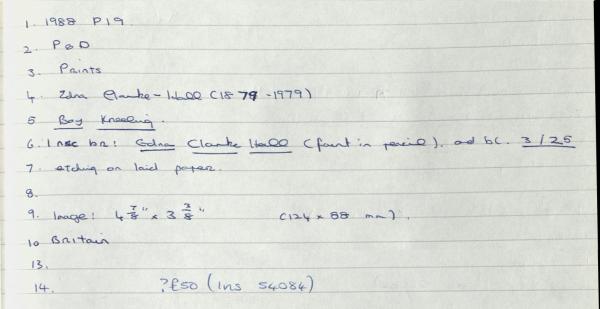 1. 1988 P19.
2. P&D
3. Prints
4. Edna Clarke-Hall (1879-1979)
5 Boy Kneeling.
6. Insc br: Edna Clarke Hall (faint in pencil), and bc. 3/25
7. etching on laid paper.
8.
9. Image: 4 7/8" x 3 3/8" (124 x 88 mm).
10 Britain
13.
14. ?£50 (Ins 54084)